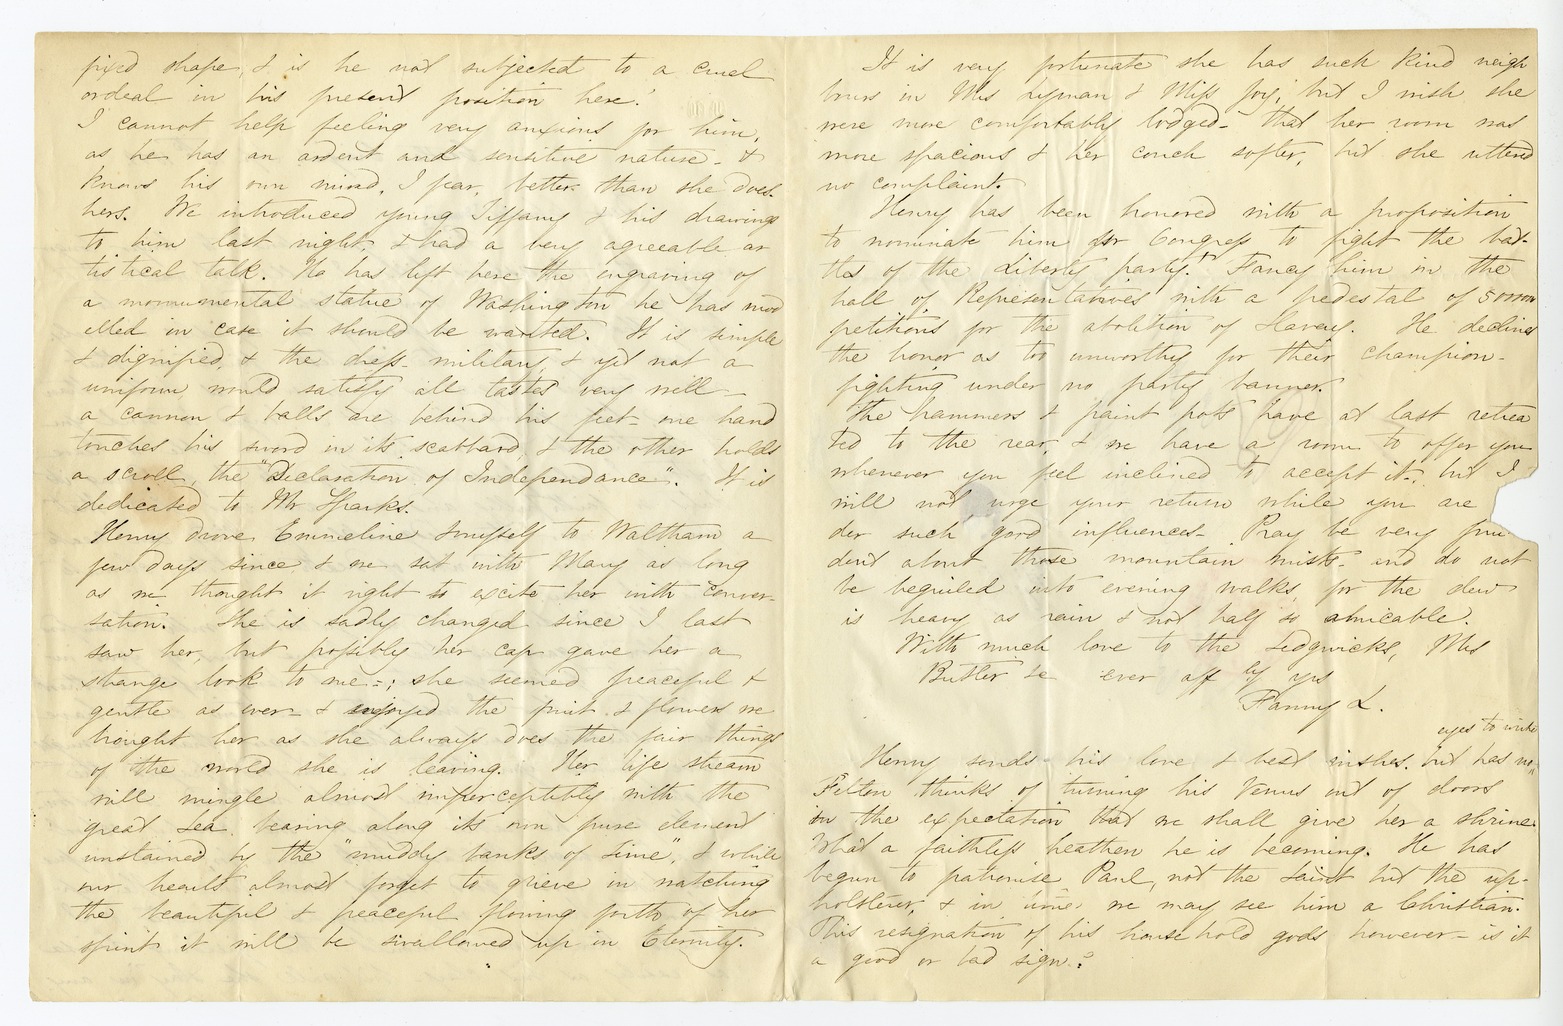 fixed shape, & is he not subjected to a cruel
ordeal in his present position here?
I cannot help feeling very anxious for him,
as he has an ardent and sensitive nature - &
knows his own mind, I fear, better than she does
hers. We introduced young Tiffany & his drawings
to him last night, & had a very agreeable ar
tistical talk. He has left here the engraving of
a monumental statue of Washington he has mod
elled in case it should be wanted. It is simple
& dignified, & the dress military & yet not a
uniform would satisfy all tastes very well -
a cannon & balls are behind his feet - one hand
touches his sword in its scabbard, & the other holds
a scroll, the "Declaration of Independance". It is
dedicated to Mr Sparks.
Henry drove Emmeline & myself to Waltham a
few days since & we sat with Mary as long
as we thought it right to excite her with conver-
sation. She is sadly changed since I last
saw her, but possibly her cap gave her a
strange look to me -; she seemed peaceful &
gentle as ever - & enjoyed the fruit & flowers we
brought her as she always does the fair things
of the world she is leaving. Her life stream
will mingle almost imperceptibly with the
great Sea, bearing along its own pure element
unstained by the "muddy banks of Time", & while
our hearts almost forget to grieve in watching
the beautiful & peaceful flowing forth of her
spirit it will be swallowed up in Eternity.
It is very fortunate she has such kind neigh
bours in Mrs Lyman & Miss Joy, but I wish she
were more comfortably lodged - that her room was
more spacious & her couch softer, but she uttered
no complaint.
Henry has been honored with a proposition
to nominate him for Congress to fight the bat-
tles of the Liberty party! Fancy him in the
hall of Representatives with a pedestal of 50000
petitions for the abolition of Slavery. He declined
the honor as too unworthy for their champion -
fighting under no party banner.
The hammers & paint pots have at last retrea
ted to the rear, & we have a room to offer you
whenever you feel inclined to accept it, but I
will not urge your return while you are
der such good influences - Pray be very pru
dent about those mountain mists - and do not
be beguiled into evening walks, for the dew
is heavy as rain & not half so amicable.
With much love to the Sedgwicks, Mrs
Butler &c ever aff ly yrs
Fanny L.
eyes to write
Henry sends his love & best wishes. but has no
Felton thinks of turning his Venus out of doors
in the expectation that we shall give her a shrine.
What a faithless heathen he is becoming. He has
begun to patronise Paul, not the Saint but the up-
holsterer, & in time we may see him a Christian.
This resignation of his household gods however - is it
a good or bad sign?